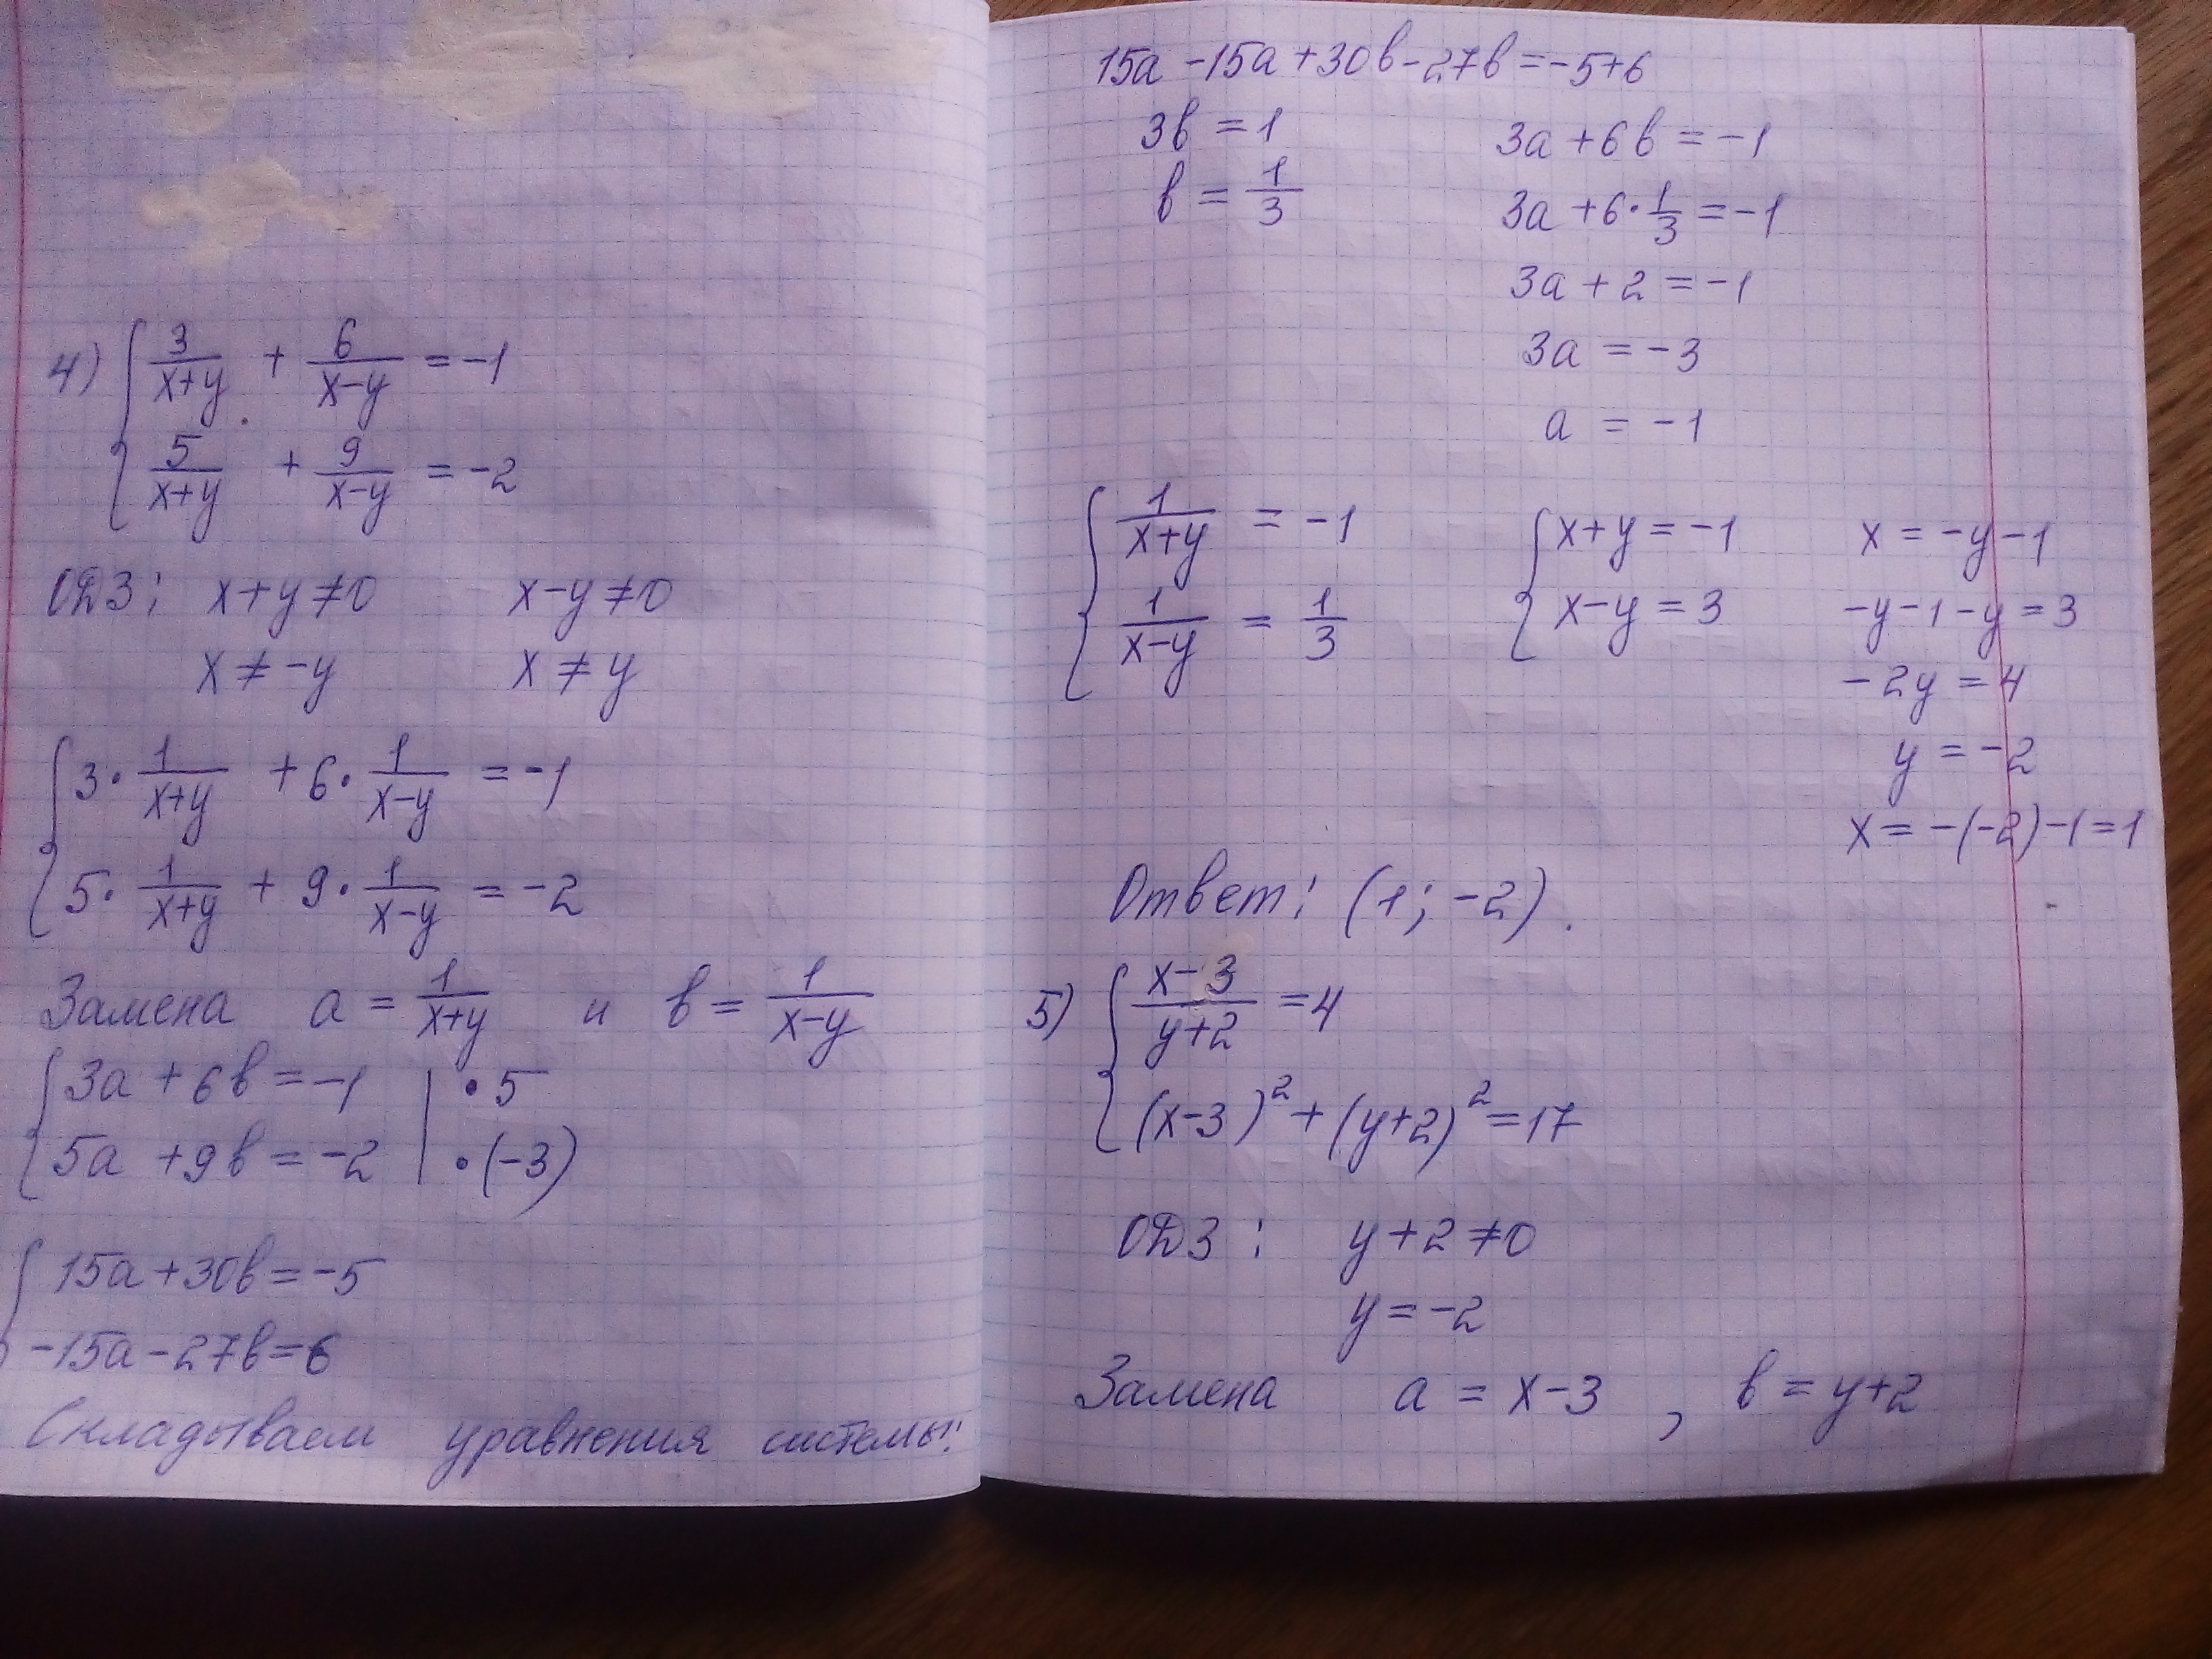 4) { 3/(x+y) + 6/(x-y) = -1
5/(x+y) + 9/(x-y) = -2
ОДЗ: x+y≠0 x-y≠0
x ≠ -y x ≠ y
{ 3· 1/(x+y) + 6· 1/(x-y) = -1
5· 1/(x+y) + 9· 1/(x-y) = -2
Замена a = 1/(x+y) и b = 1/(x-y)
{ 3a + 6b = -1 | ·5
5a + 9b = -2 | ·(-3)
{ 15a + 30b = -5
-15a - 27b = 6
Складываем уравнения системы:
15a - 15a + 30b - 27b = -5+6
3b = 1
b = 1/3
3a + 6b = -1
3a + 6· 1/3 = -1
3a + 2 = -1
3a = -3
a = -1
{ 1/(x+y) = -1
1/(x-y) = 1/3
{ x+y = -1
x-y = 3
x = -y - 1
-y - 1 - y = 3
-2y = 4
y = -2
x = -(-2)-1=1
Ответ: (1; -2).
5) { (x-3)/(y+2) = 4
(x-3)² + (y+2)² = 17
ОДЗ: y+2≠0
y = -2
Замена a = x-3 , b = y+2